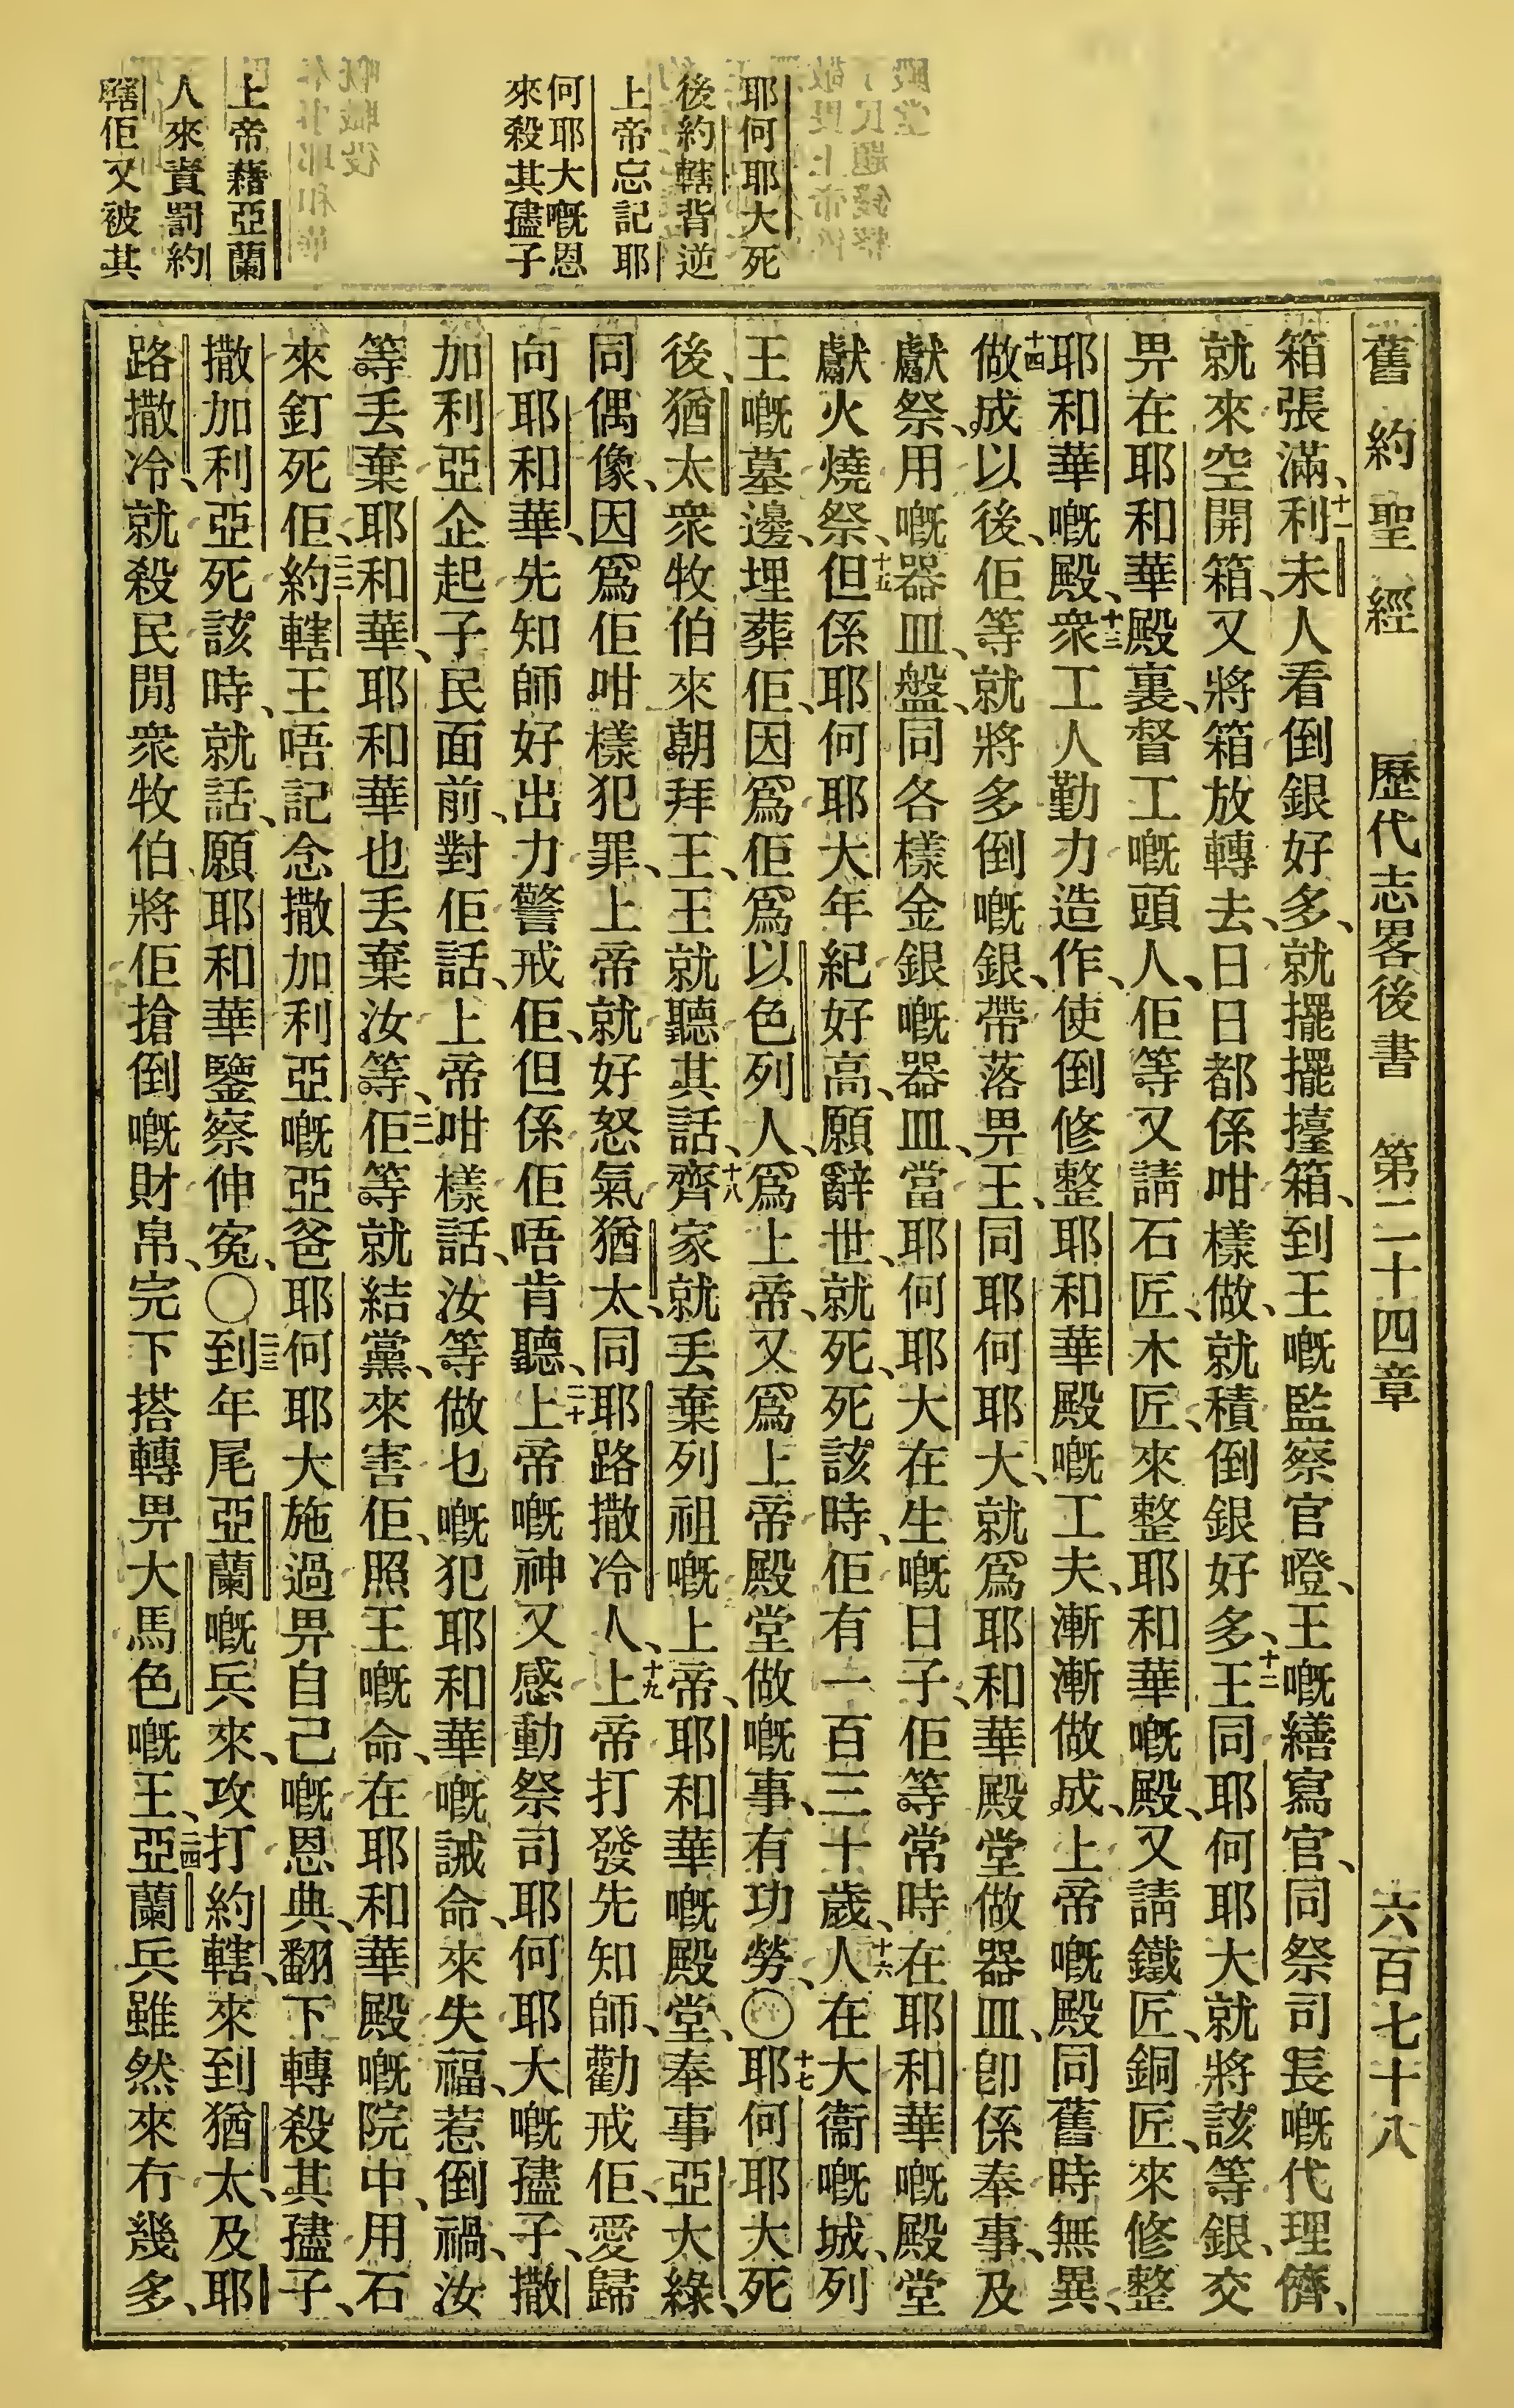 耶何耶大死
後約轄背逆
上帝忘記耶
何耶大嘅恩
來殺其𡥧子
上帝藉亞蘭
人來責罰約
轄佢又被其
舊約聖經 歷代志畧後書 第二十四章 六百七十八
箱張滿、十一利未人看倒銀好多、就擺擺擡箱、到王嘅監察官嶝、王嘅繕寫官、同祭司長嘅代理儕、
就來空開箱、又將箱放轉去、日日都係咁樣做、就積倒銀好多、十二王同耶何耶大就將該等銀、交
畀在耶和華殿裏、督工嘅頭人、佢等又請石匠、木匠、來整耶和華嘅殿、又請鐵匠、銅匠、來修整
耶和華嘅殿、十三衆工人勤力造作、使倒修整耶和華殿嘅工夫、漸漸做成、上帝嘅殿同舊時無異、
十四做成以後、佢等就將多倒嘅銀、帶落畀王、同耶何耶大、就爲耶和華殿堂做器皿、卽係奉事、及
獻祭、用嘅器皿、盤、同各樣金銀嘅器皿、當耶何耶大在生嘅日子、佢等常時在耶和華嘅殿堂
獻火燒祭、十五但係耶何耶大年紀好高、願辭世、就死、死該時、佢有一百三十歲、十六人在大衞嘅城、列
王嘅墓邊、埋葬佢、因爲佢爲以色列人、爲上帝、又爲上帝殿堂做嘅事、有功勞、〇十七耶何耶大死
後、猶太衆牧伯來朝拜王、王就聽其話、十八齊家就丟棄列祖嘅上帝、耶和華嘅殿堂、奉事亞大綠、
同偶像、因爲佢咁樣犯罪、上帝就好怒氣猶太、同耶路撒冷人、十九上帝打發先知師、勸戒佢、愛歸
向耶和華、先知師好出力警戒佢、但係佢唔肯聽、二十上帝嘅神又感動祭司耶何耶大嘅𡥧子、撒
加利亞企起子民面前、對佢話、上帝咁樣話、汝等做乜嘅犯耶和華嘅誡命、來失福、惹倒禍、汝
等丟棄耶和華、耶和華也丟棄汝等、二一佢等就結黨、來害佢、照王嘅命、在耶和華殿嘅院中、用石
來釘死佢、二二約轄王唔記念撒加利亞嘅亞爸耶何耶大施過畀自己嘅恩典、翻下轉殺其𡥧子、
撒加利亞死該時、就話、願耶和華鑒察伸寃、〇二三到年尾亞蘭嘅兵來、攻打約轄、來到猶太、及耶
路撒冷、就殺民間衆牧伯、將佢搶倒嘅財帛、完下搭轉畀大馬色嘅王、二四亞蘭兵雖然來冇幾多、